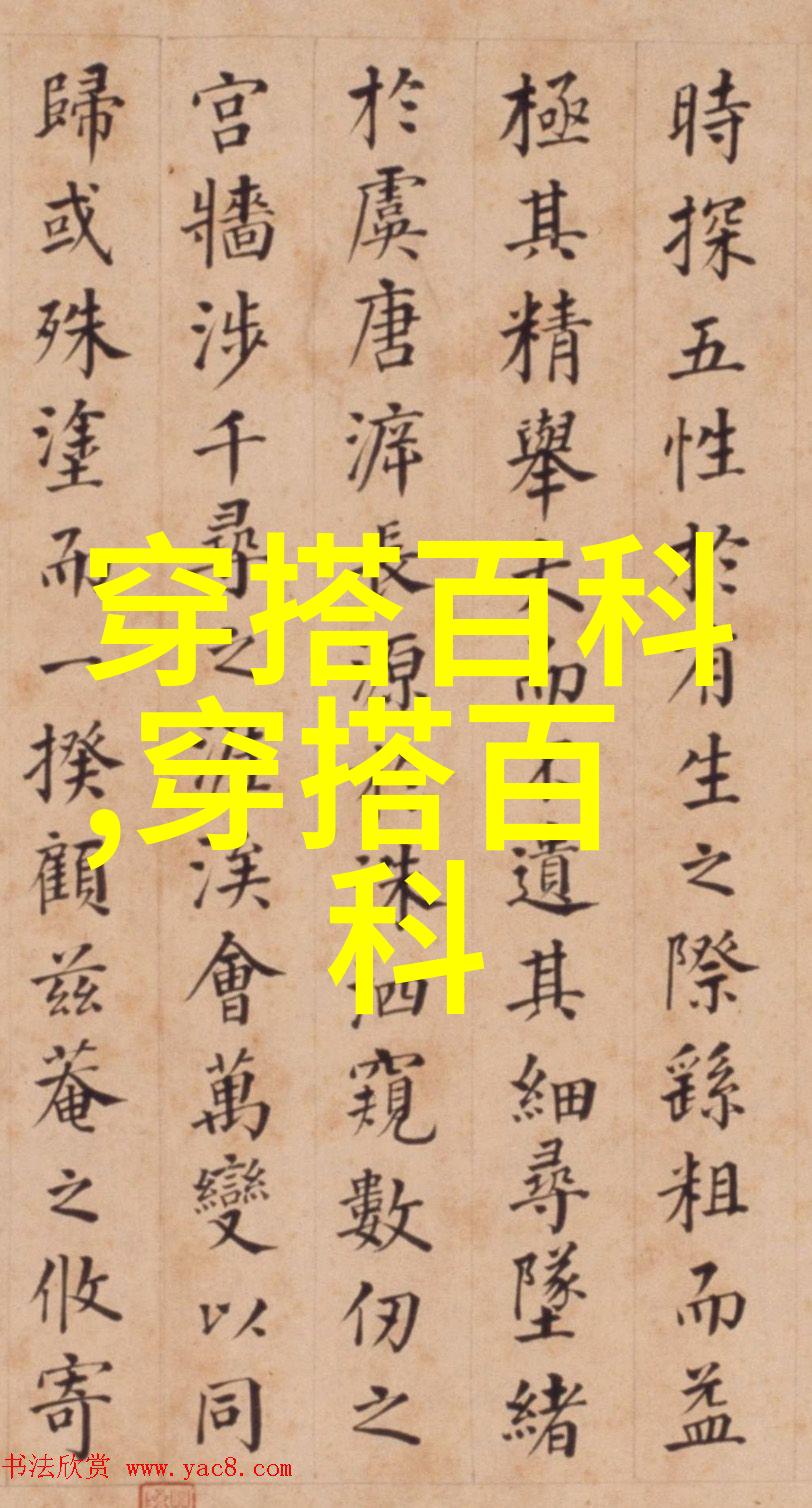 時探五性於有生之際繇粗而益
極其精舉大而不遺其細尋墜緒
於虞唐長源洙泗窺數仞之
宮牆涉千尋之涯涘會萬變以同
歸或殊塗而一揆顧茲菴之攸寄
穿搭百科
,穿搭百
科
书法欣赏 www.yac8.com